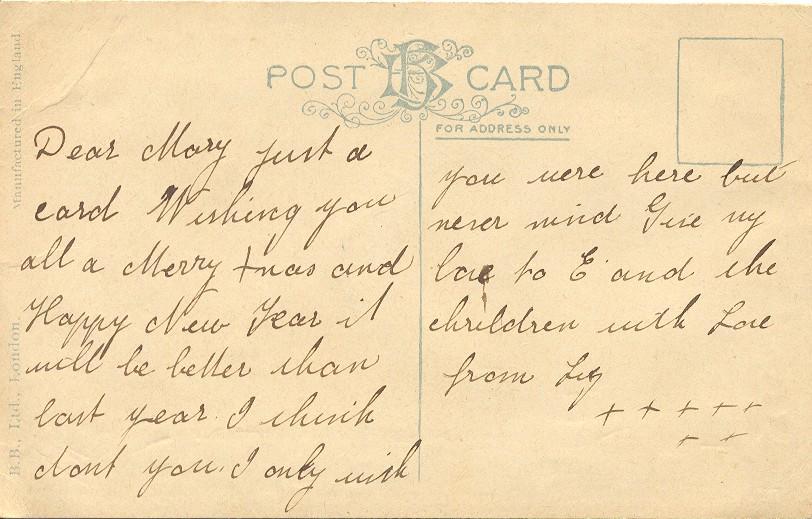 POST BB CARD
FOR ADDRESS ONLY
Manufactured in England
B.B., Ltd., London.
Dear Mary just a
card Wishing you
all a Merry Xmas and
Happy New Year it
will be better than
last year. I think
dont you. I only wish
you were here but
never mind Give my
love to E and the
children with Love
from Liz
+ + + + +
+ +